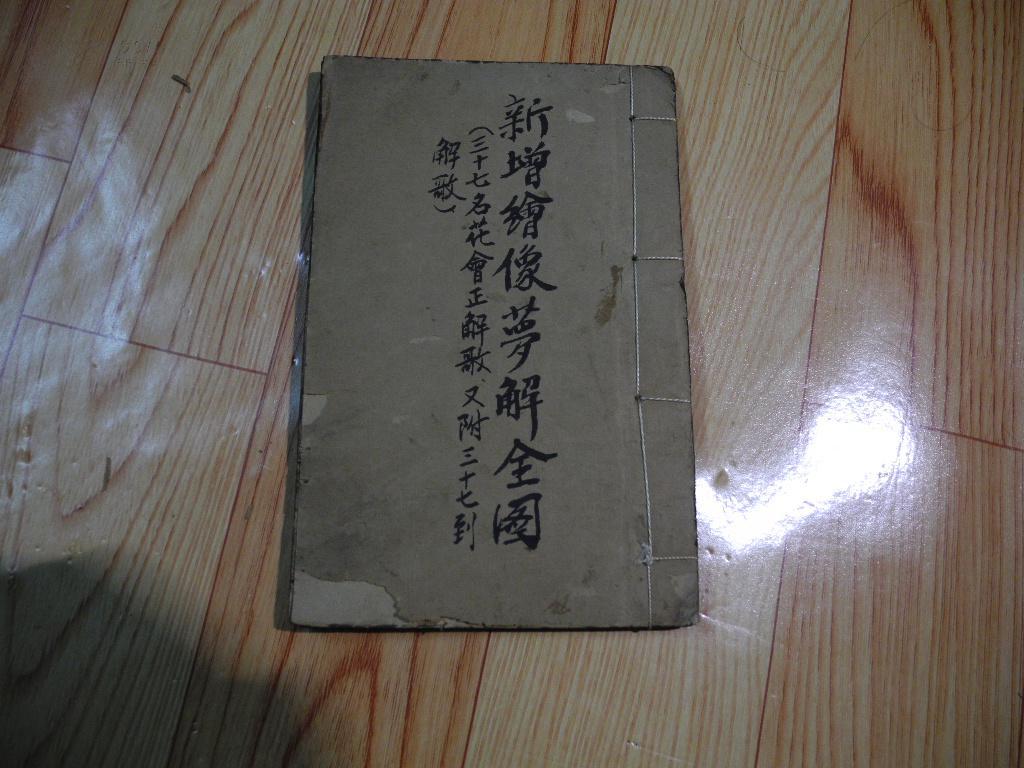 新增繪像夢解全图
(三十七名花會正解歌、又附三十七到
解歌)